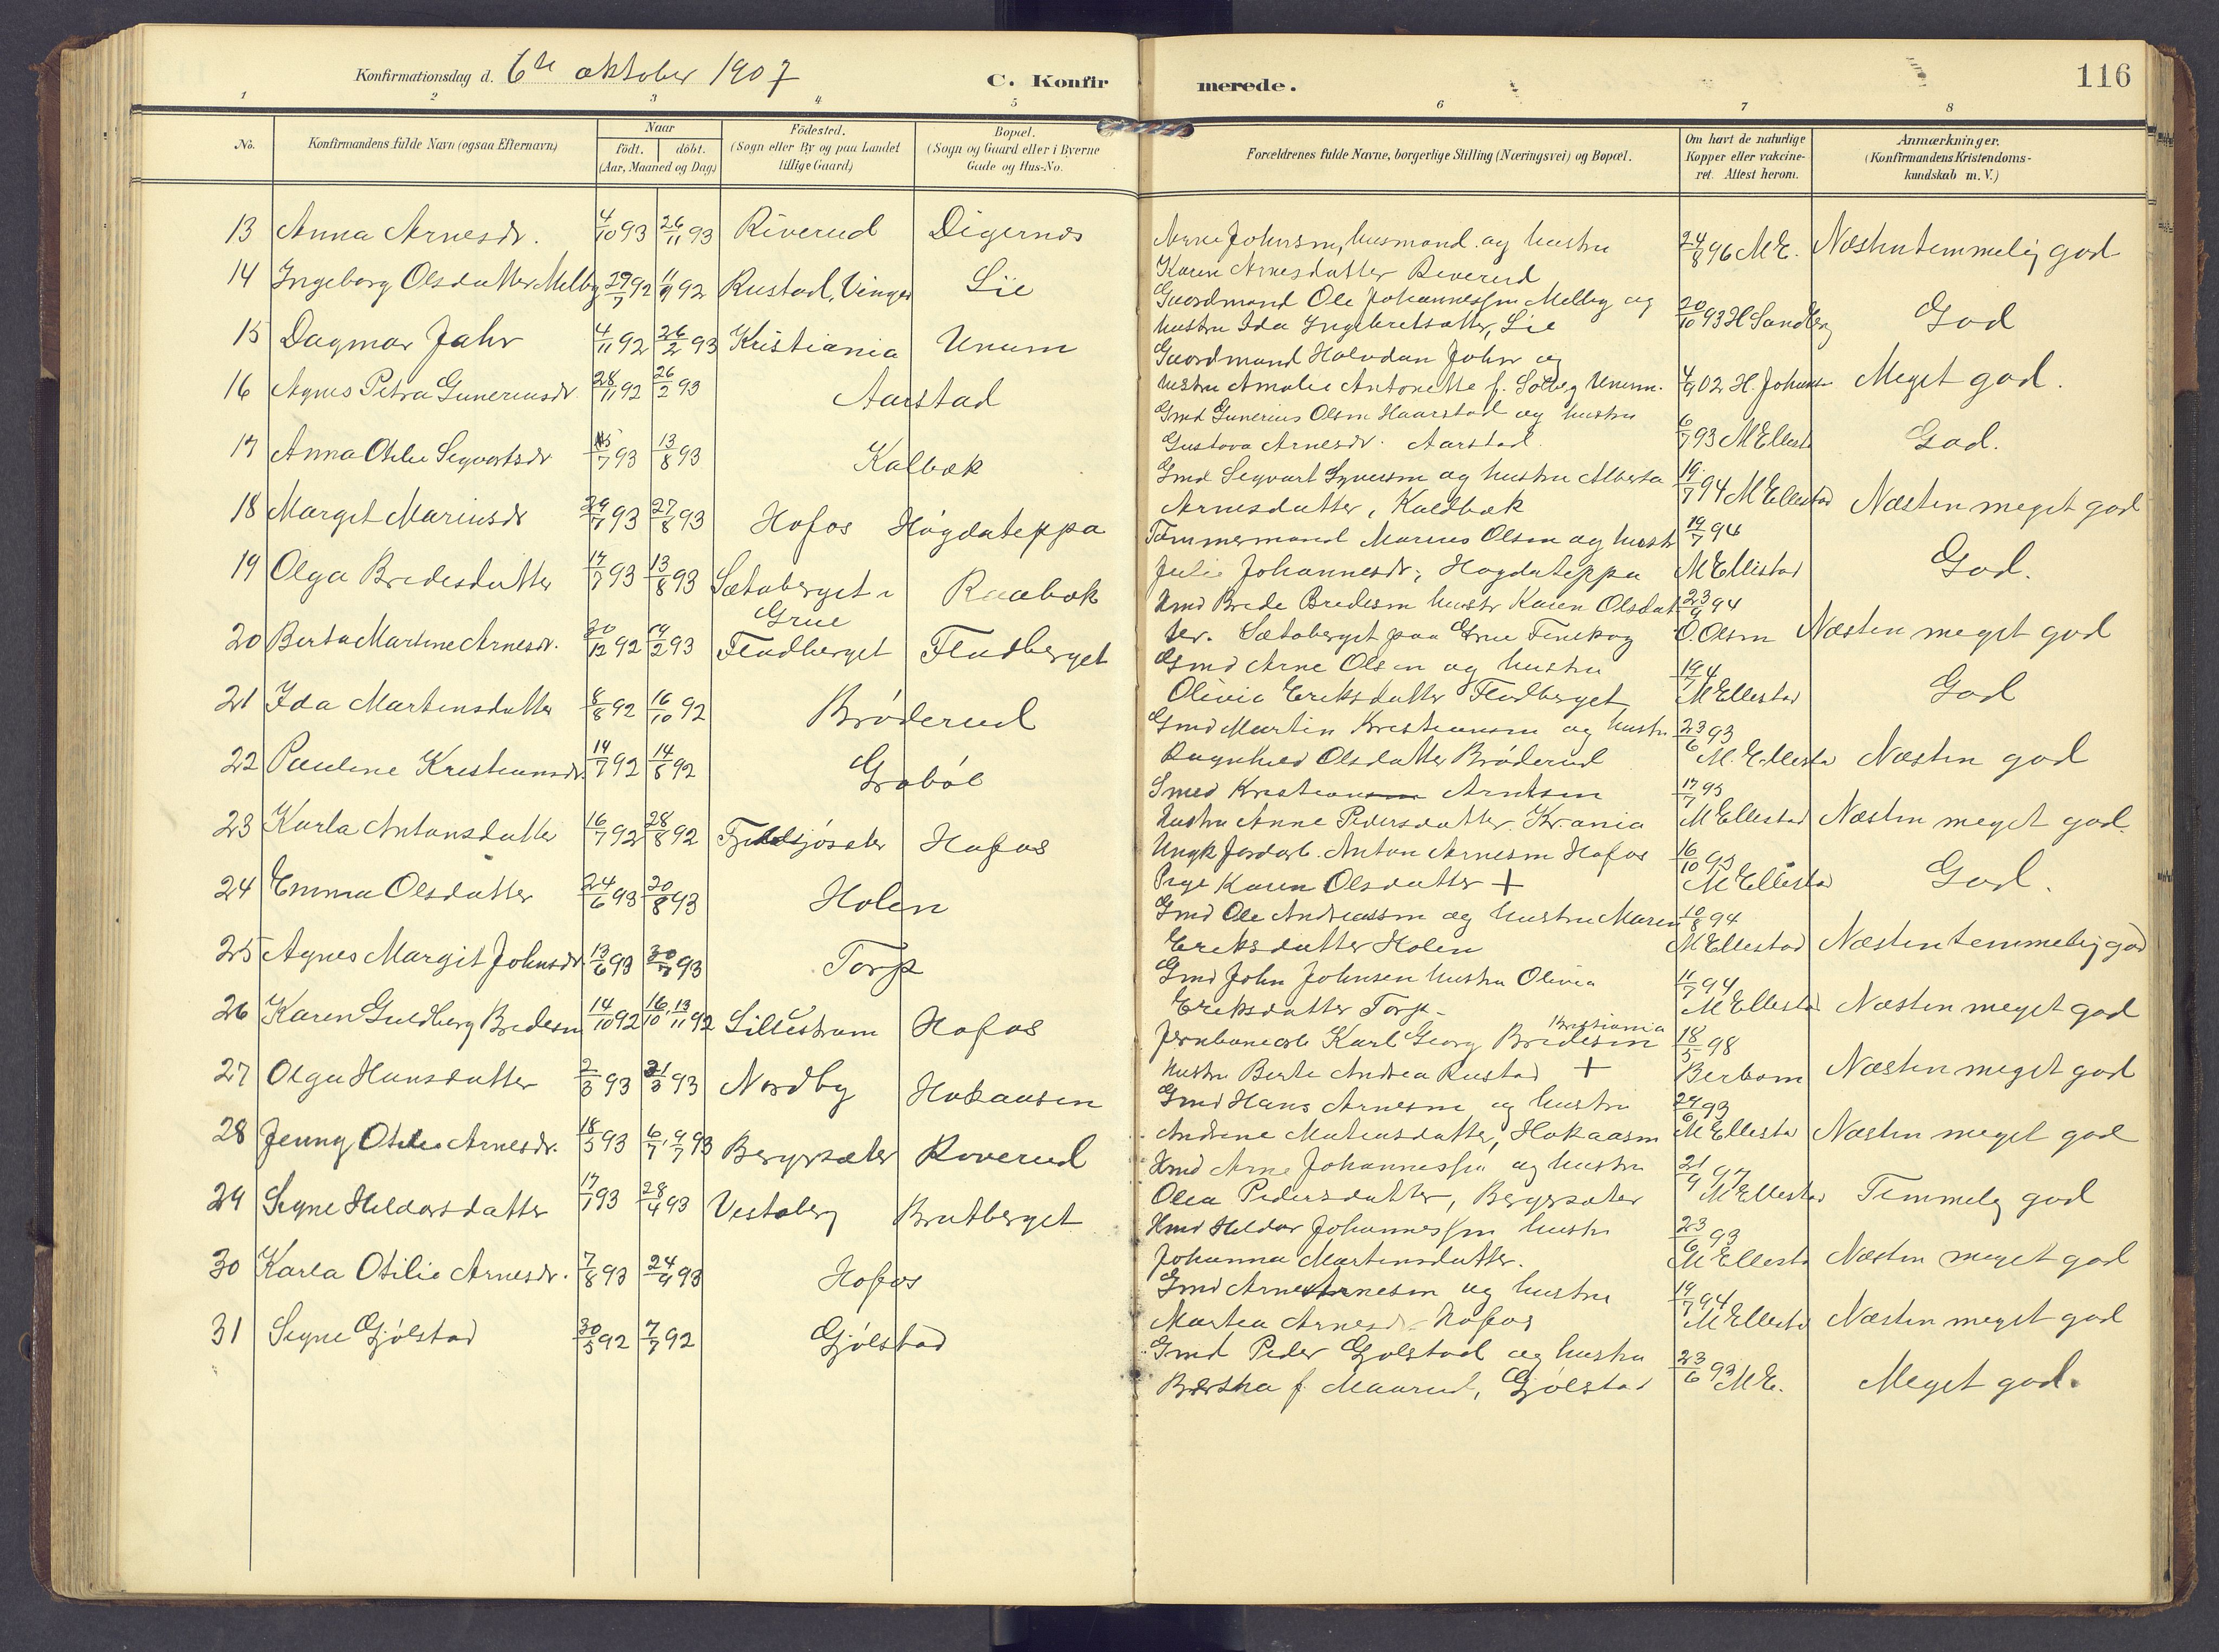 Konfirmationsdag d. 6te oktober 1907
C. Konfirmerede.
116
1 2 3 4 5 6 7 8
No.
Konfirmandens fulde Navn (ogsaa Efternavn)
Naar
födt. döbt.
(Aar, Maaned og Dag)
Födested.
(Sogn eller By og paa Landet
tillige Gaard)
Bopæl.
(Sogn og Gaard eller i Byerne
Gade og Hus-No.
Forældrenes fulde Navne, borgerlige Stilling (Næringsvei) og Bopæl.
Om havt de naturlige
Kopper eller vakcine-
ret. Attest herom.
Anmærkninger.
(Konfirmandens Kristendoms-
kundskab m. V.)
13 Anna Arnesdr. 4/10 93 26/11 93 Riverud Digernes
Arne Johnsen, husmand og hustru
Karen Arnesdatter Riverud
24/8 96 M E. Næsten temmelig god
14 Ingeborg Olsdatter Melby 29/7 92 11/9 92 Rustad, Vinger Lie
Gaardmand Ole Johannessen Melby og
hustru Ida Ingebretsdatter, Lie
20/10 93 H Sandberg God
15 Dagmar Jahr 4/11 92 26/2 93 Kristiania Unum
Gaardmand Halvdan Jahr og
hustru Amalie Antonette f. Solberg Unum.
4/9 02 H. Johans Meget god.
16 Agnes Petra Guneriusdr 28/11 92 26/2 93 Aarstad
Gmd Gunerius Olsen Haarstad og hustru
Gustava Arnesdr. Aarstad.
6/7 93 M Ellesta God.
17 Anna Otilie Segvartsdr 15/7 93 13/8 93 Kalbæk
Gmd Segvart Syversen og hustru Alberta
Arnesdatter, Kaldbæk
19/7 94 M Ellestad Næsten meget god
18 Marget Mariusdr 29/7 93 27/8 93 Hofos Högdateppa
Tömmermand Marius Olsen og hustr
Julie Johannesdr, Hogdateppa
19/7 94
M Ellistad God.
19 Olga Bredesdatter 17/7 93 13/8 93 Sætaberget i Raabæk
Grue
Hmd Brede Bredesen hustr Karen Olsdat
ter. Sætaberget paa Grue Finskog
23/9 94
O. Olsen Næsten meget god
20 Berta Martine Arnesdr. 30/12 92 19/2 93 Fladberget Fladberget
Gmd Arne Olsen og hustru
Olivia Eriksdatter Fladberget
M Ellestad God
21 Ida Martinsdatter 8/8 92 16/10 92 Bröderud
Gmd Martin Kristiansen og hustr
Ragnhild Olsdatter Bröderud
23/6 93
M. Ellesta Næsten god
22 Pauline Kristiansdr. 14/7 92 14/8 92 Graböl
Smed Kristian Arntsen
Hustru Anne Pedersdatter. Kr.ania
17/7 93
M Ellestad Næsten meget god.
23 Karla Antonsdatter 16/7 92 28/8 92 Hofos
Ungk Jordarb. Anton Arnesen Hofos
Pige Karen Olsdatter +
16/10 93
M Ellesta God.
24 Emma Olsdatter 24/6 93 20/8 93 Holen
Gmd Ole Andreassen og hustru Maren
Eriksdatter Holen
10/8 94
M Ellestad Næsten temmelig god
25 Agnes Margit Johnsdr. 13/6 93 30/7 93 Torp
Gmd John Johnsen hustru Olivia
Eriksdatter Torp.
11/7 94
M Ellestad Næsten meget god
26 Karen Guldberg Bredesen 14/10 92 16/10, 13/11 92 Lillestrøm Hofos
Kristiania
Jernbanearb Karl Georg Bredesen
hustru Berte Andrea Rustad +
18/5 98
Berbom Næsten meget god
27 Olga Hansdatter 2/3 93 31/3 93 Nordby Hokaasen
Gmd Hans Arnesen og hustru
Andrine Mateusdatter, Hokaasen
29/6 93
M Ellesta Næsten meget god
28 Jenny Otilie Arnesdr. 18/5 93 6/7, 9/7 93 Bergersæter Roverud
Hmd Arne Johannessen og hustru
Olea Pedersdatter, Bergersæter
21/9 97
M Ellestad Temmelig god
29 Signe Heldorsdatter 17/1 93 28/4 93 Vestaberg Bratberget
Hmd Heldor Johannessen hustru
Johanna Martinsdatter.
23/6 93
M Ellesta Næsten meget god
30 Karla Otilie Arnesdr. 7/8 93 24/9 93 Hofos
Gmd Arne Arnesen og hustru
Martea Arnesdr. Hofos
19/7 94
M Ellesta Næsten meget god
31 Signe Gjölstad 30/5 92 7/7 92 Gjölstad
Gmd Peder Gjölstad og hustru
Bertha f. Maarud, Gjölstad
23/6 93 M E. Meget god.